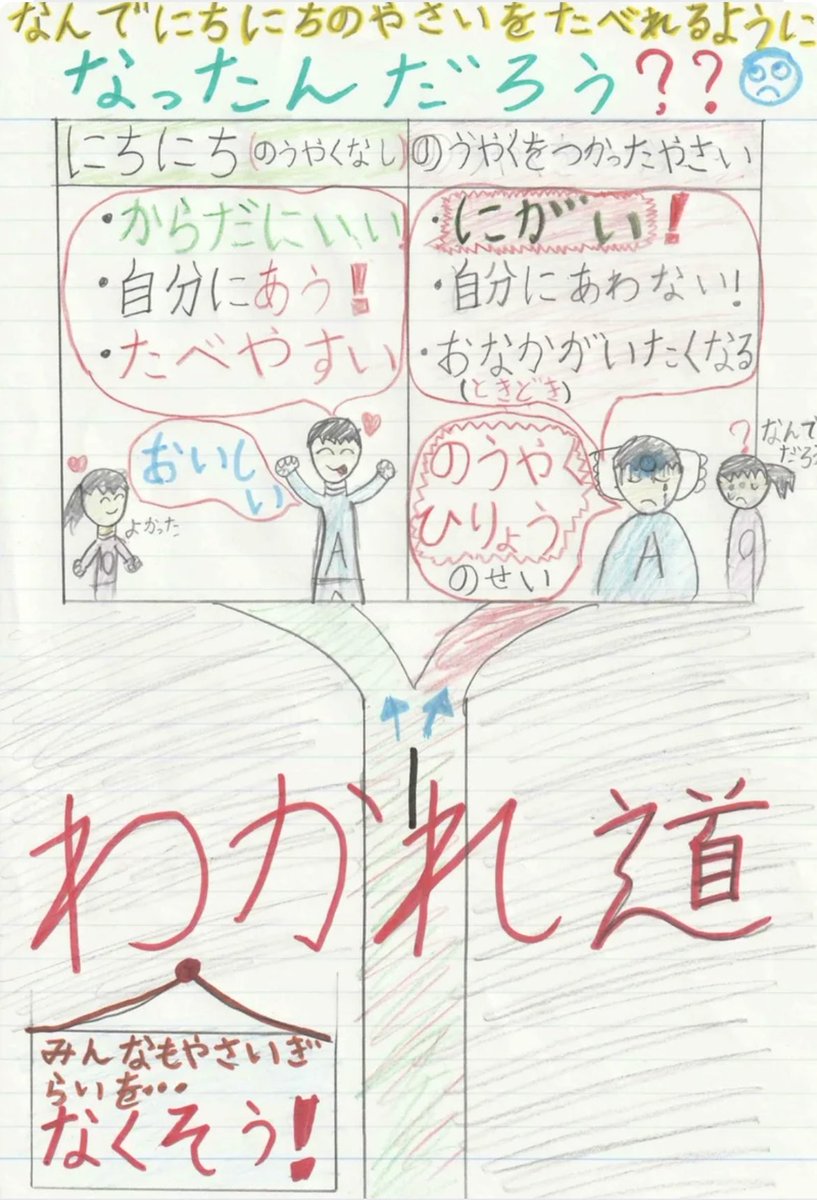 なんでにちにちのやさいをたべれるように
なったんだろう??
にちにち(のうやくなし)
のうやくをつかったやさい
・からだにいい
・自分にあう!
・たべやすい
おいしい
よかった
・にがい!
・自分にあわない!
・おなかがいたくなる
(ときどき)
のうやく
ひりょう
のせい
?
なんで
だろう
A
A
わかれ道
みんなもやさいぎ
らいを…
なくそう!